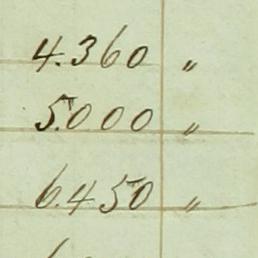 4.360 〃
5.000 〃
6.450 〃